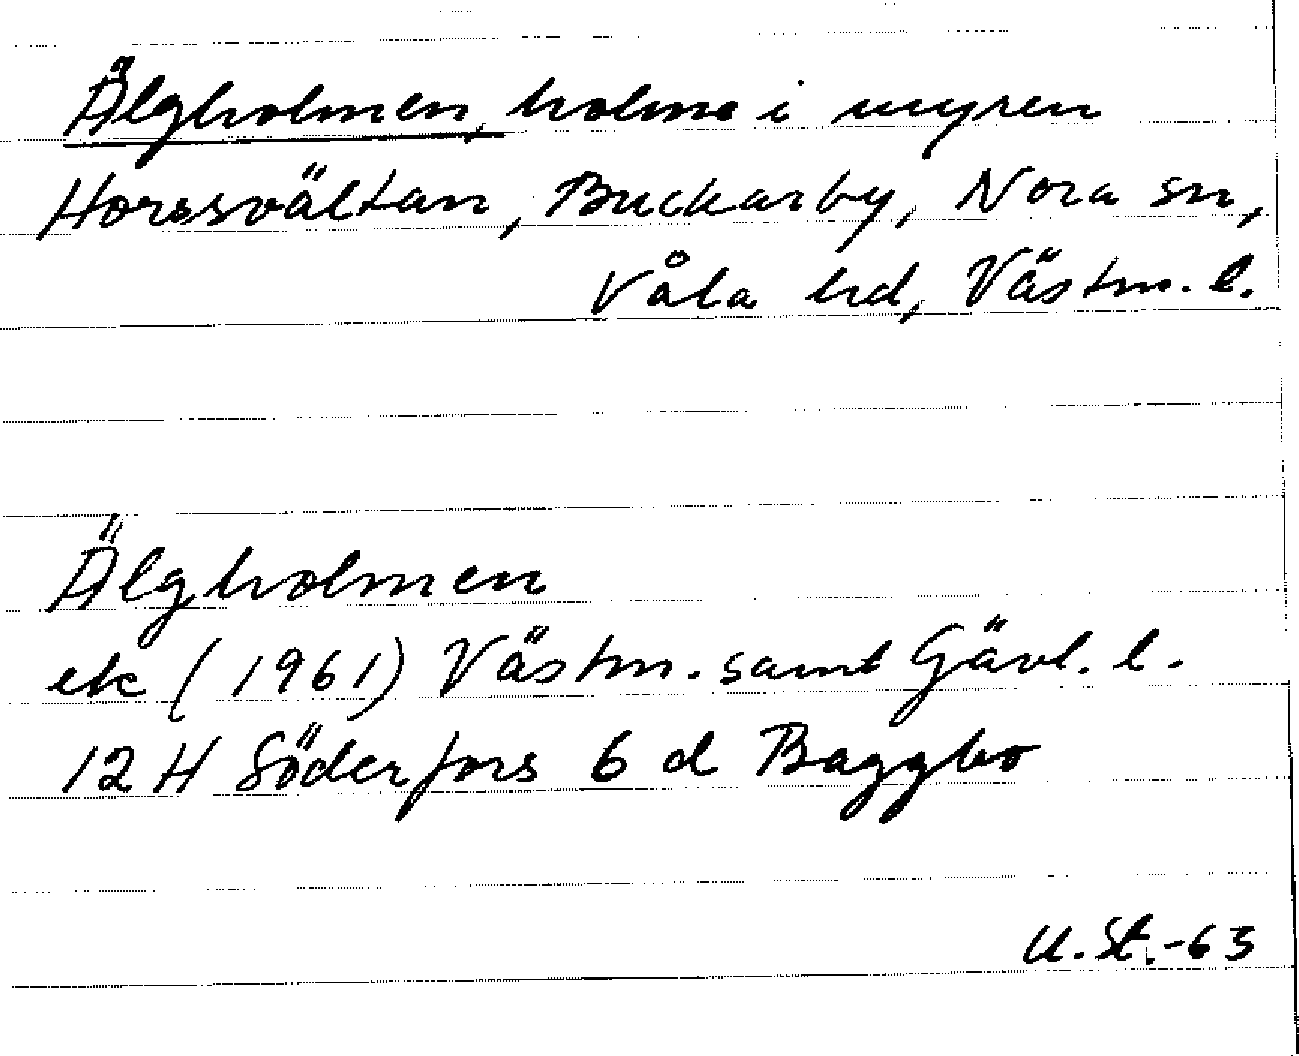 Älgholmen, holme i myren
Horssvältan, Buckarby, Nora sn,
Våla hd, Västm. l.
Älgholmen
ek (1961) Västm. samt Gävl. l.
12 H Söderfors 6 d Baggbo
U. St. -63